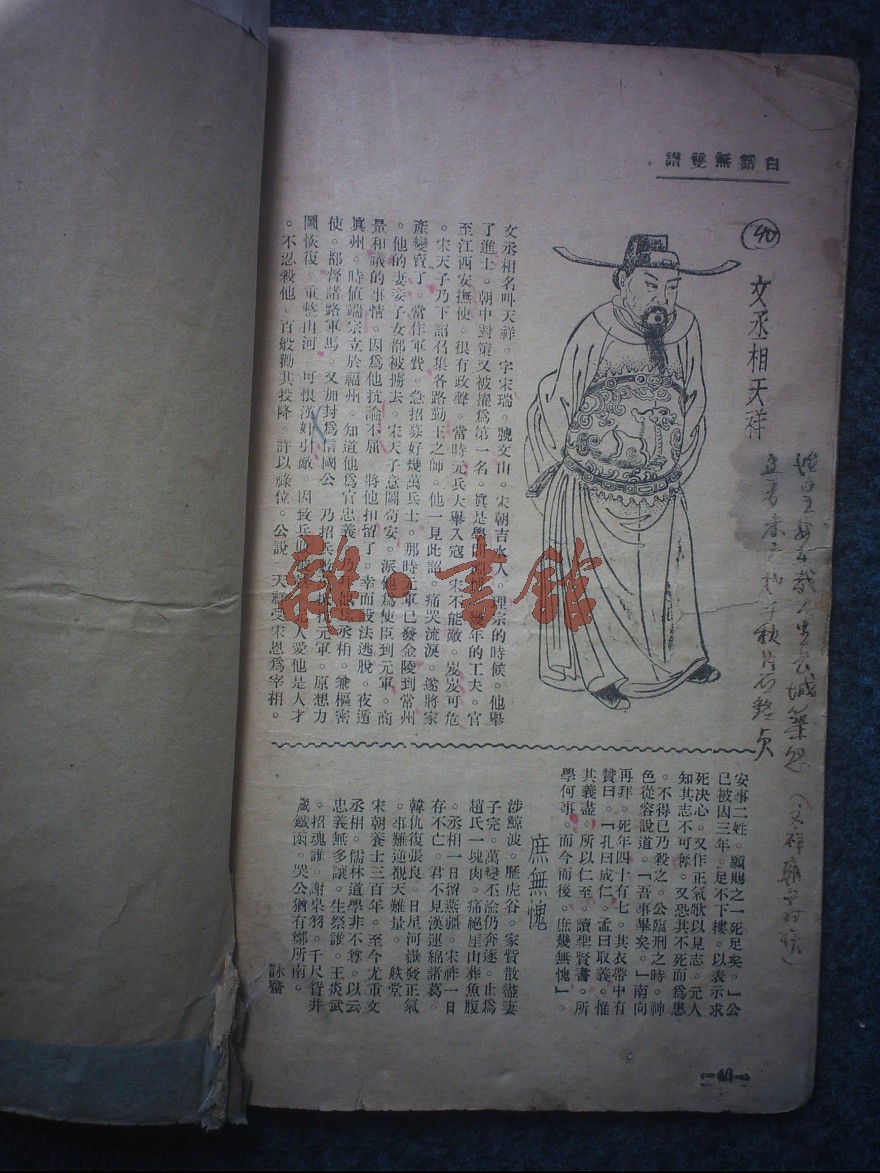 白話無雙譜
40
文丞相天祥
安在哉萬里長城築怨
千秋片石銘貞
文丞相名叫天祥。字宋瑞。號文山。宋朝吉水人。理宗的時候。他舉
了進士。朝中對策又被擢爲第一名。眞是學問年的工夫。官
至江西安撫使。很有政聲。當時元兵大舉入寇。宋不能敵。岌岌可危
。宋天子乃下詔召集各路勤王之師。他一見此詔。痛哭流淚。遂將家
產變賣了。當作軍費。急招募好幾萬兵士。那時元軍已發金陵到常州
。他的妻妾子女都被擄去。宋天子意圖苟安。派他爲使臣到元軍。商
量和議的事情。因爲他抗論不屈。將他扣留了。幸而設法逃脫。夜遁
眞州。時値端宗立於福州。知道他爲官忠義。乃拜他爲丞相。兼樞密
使。都督諸路軍馬。又加封爲信國公。乃招兵元軍。原想力
圖恢復。重整山河。可恨漢奸引敵。因致兵人愛他是人才
。不忍殺他。百般勸其投降。許以祿位。公說。天祥受宋恩爲宰相。
安事二姓。願賜之一死足矣。」公
已被囚三年。足不下樓。以表示求
死决心。又作正氣歌以見志。元人
知其志不可奪。又恐其不死而爲患
。不得已乃殺之。公臨刑之時。神
色從容說道。「吾事畢矣。」南向
再拜。死年四十有七。其衣帶中有
贊曰。「孔曰成仁。孟曰取義。惟
其義盡。所以仁至。讀聖賢書。所
學何事。而今而後。庶幾無愧」。
庶無愧
涉鯨波。歷虎谷。家貲散盡妻
子完。萬變不渝仍奔逐。止爲
趙氏一塊肉。痛絕厓山葬魚腹
。丞相一日留燕疆。宋祚一日
存不亡。君不見漢運綿諸葛。
韓仇復張良。日星河嶽發正氣
。事難逆覩天難量。缺堂
宋朝養士三百年。至今尤重文
丞相。儒林道學非不尊。以云
忠義無多讓。生祭誰。王炎武
。招魂誰。謝臯羽。千尺眢井
歲鐵函。哭公猶有鄭所南。
詠齋
40
雜·書館